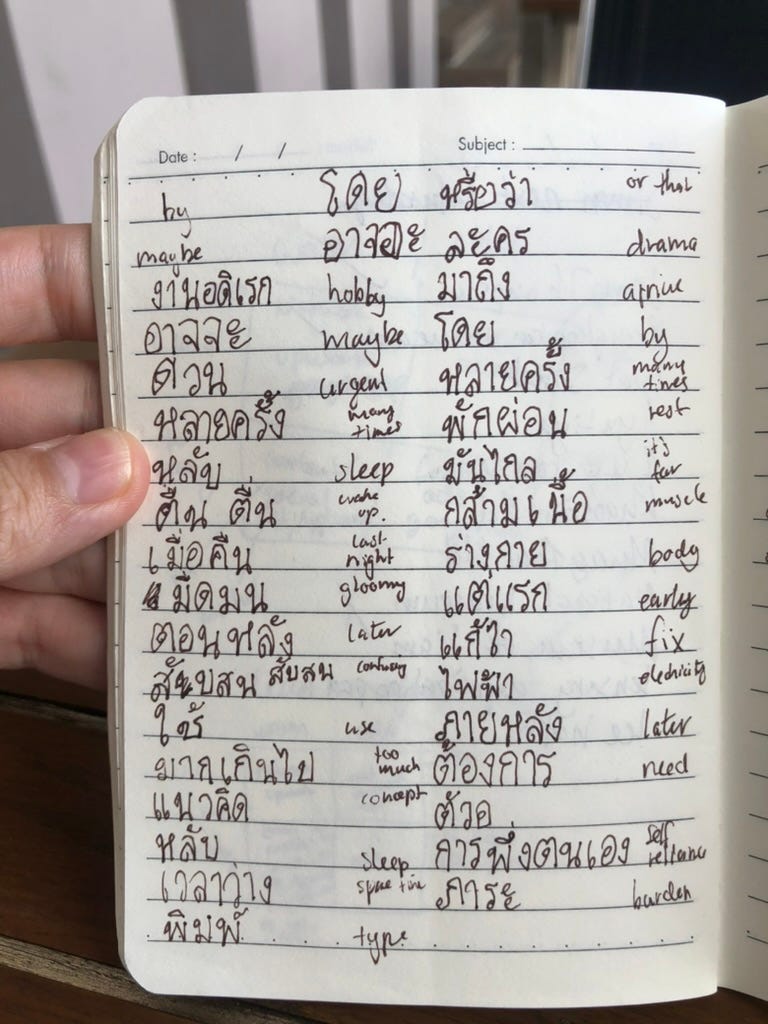 Date : / / Subject :
by โดย หรือว่า or that
maybe อาจจะ ละคร drama
งานอดิเรก hobby มาถึง arrive
อาจจะ maybe โดย by
ด่วน urgent หลายครั้ง many times
หลายครั้ง many times พักผ่อน rest
หลับ sleep มันไกล it's far
ตื่น ตื่น wake up. กล้ามเนื้อ muscle
เมื่อคืน last night ร่างกาย body
มืดมน gloomy แต่แรก early
ตอนหลัง later แก้ไข fix
สับสน สับสน confusing ไฟฟ้า electricity
ใช้ use ภายหลัง later
มากเกินไป too much ต้องการ need
แนวคิด concept ตัวอ
หลับ sleep การพึ่งตนเอง self reliance
เวลาว่าง spare time ภาระ burden
พิมพ์ type